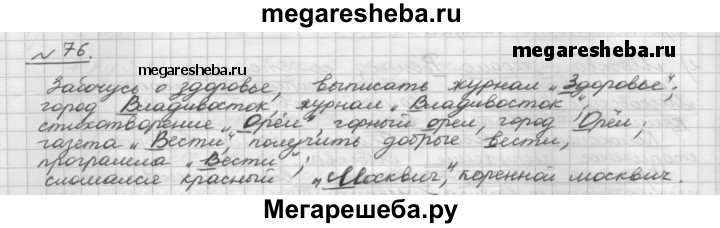 megaresheba.ru
№ 76.
megaresheba.ru
Забочусь о здоровье, выписать журнал „Здоровье";
город Владивосток, журнал „Владивосток";
стихотворение „Орёл" горный орел, город Орёл;
газета „Вести", получить добрые вести,
программа „Вести";
сломался красный „Москвич", коренной москвич.
megaresheba.ru
Мегарешеба.ру